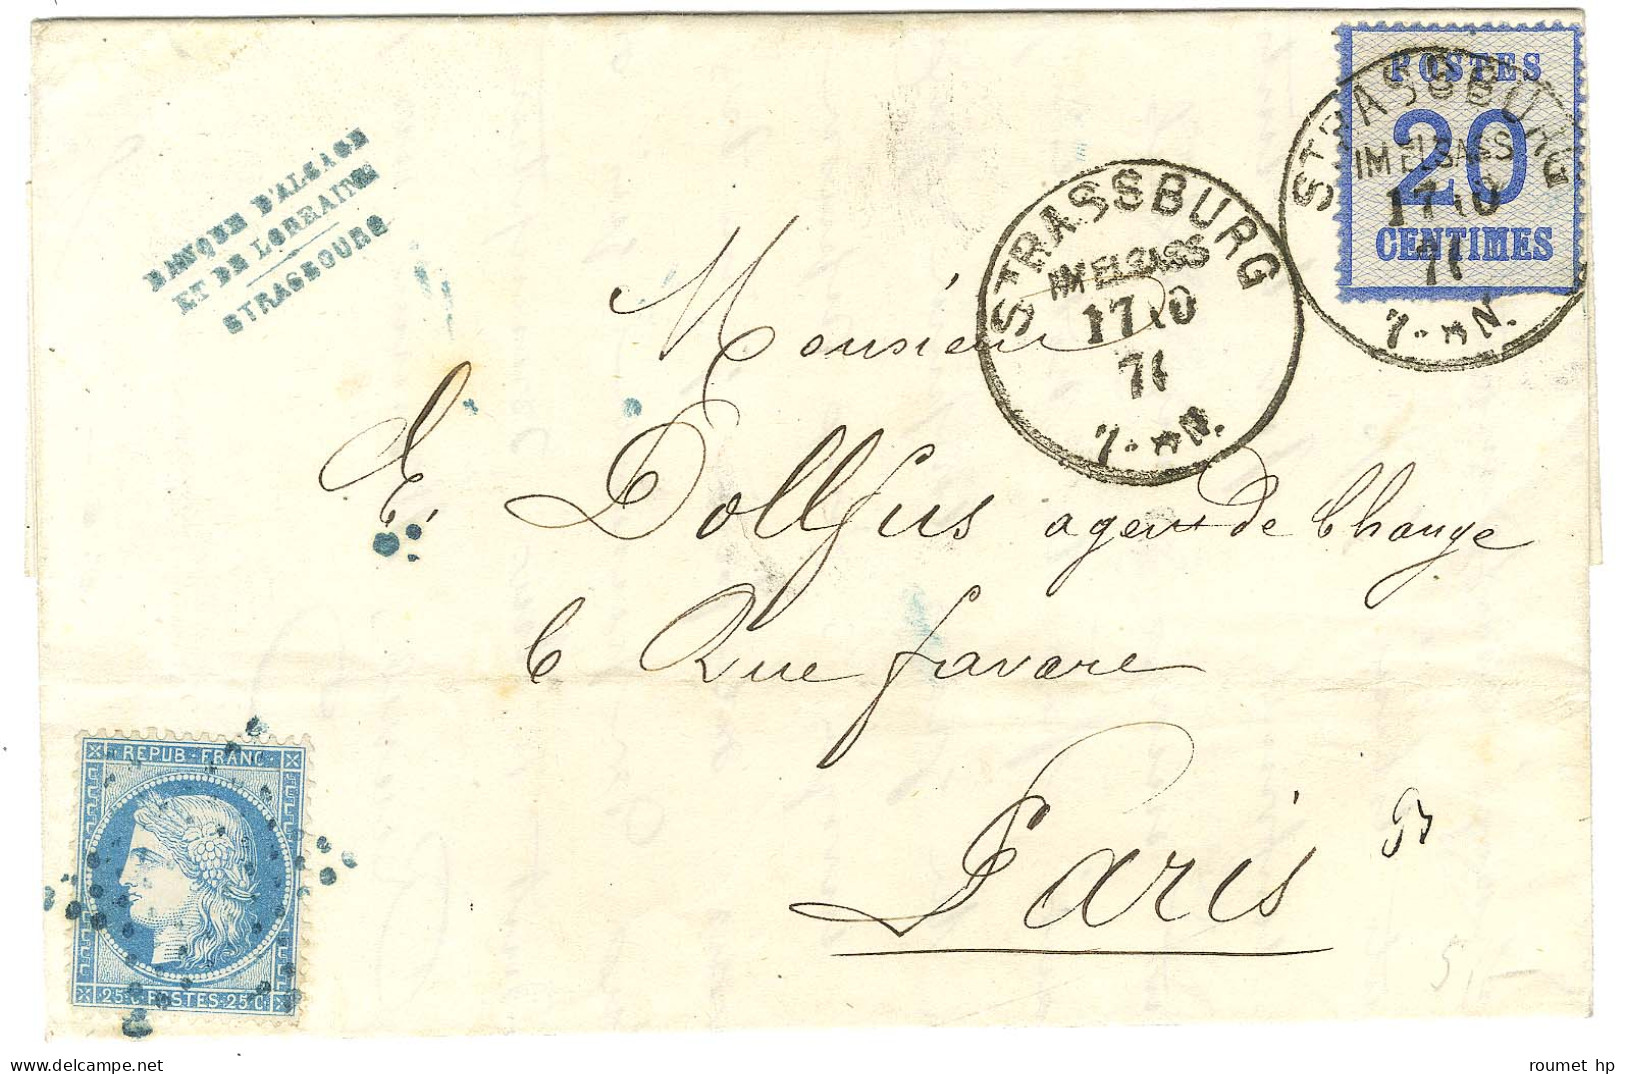 BANQUE D'ALSACE
ET DE LORRAINE
STRASBOURG
POSTES
20
CENTIMES
STRASSBURG
IM ELSASS
17 10
71
7-8 N.
STRASSBURG
IM ELSASS
17 10
71
7-8 N.
Monsieur
E. Dollfus agent de Change
6 Rue favare
Paris
REPUB·FRANC
25 C POSTES 25 C
5,-
delcampe.net
roumet hp